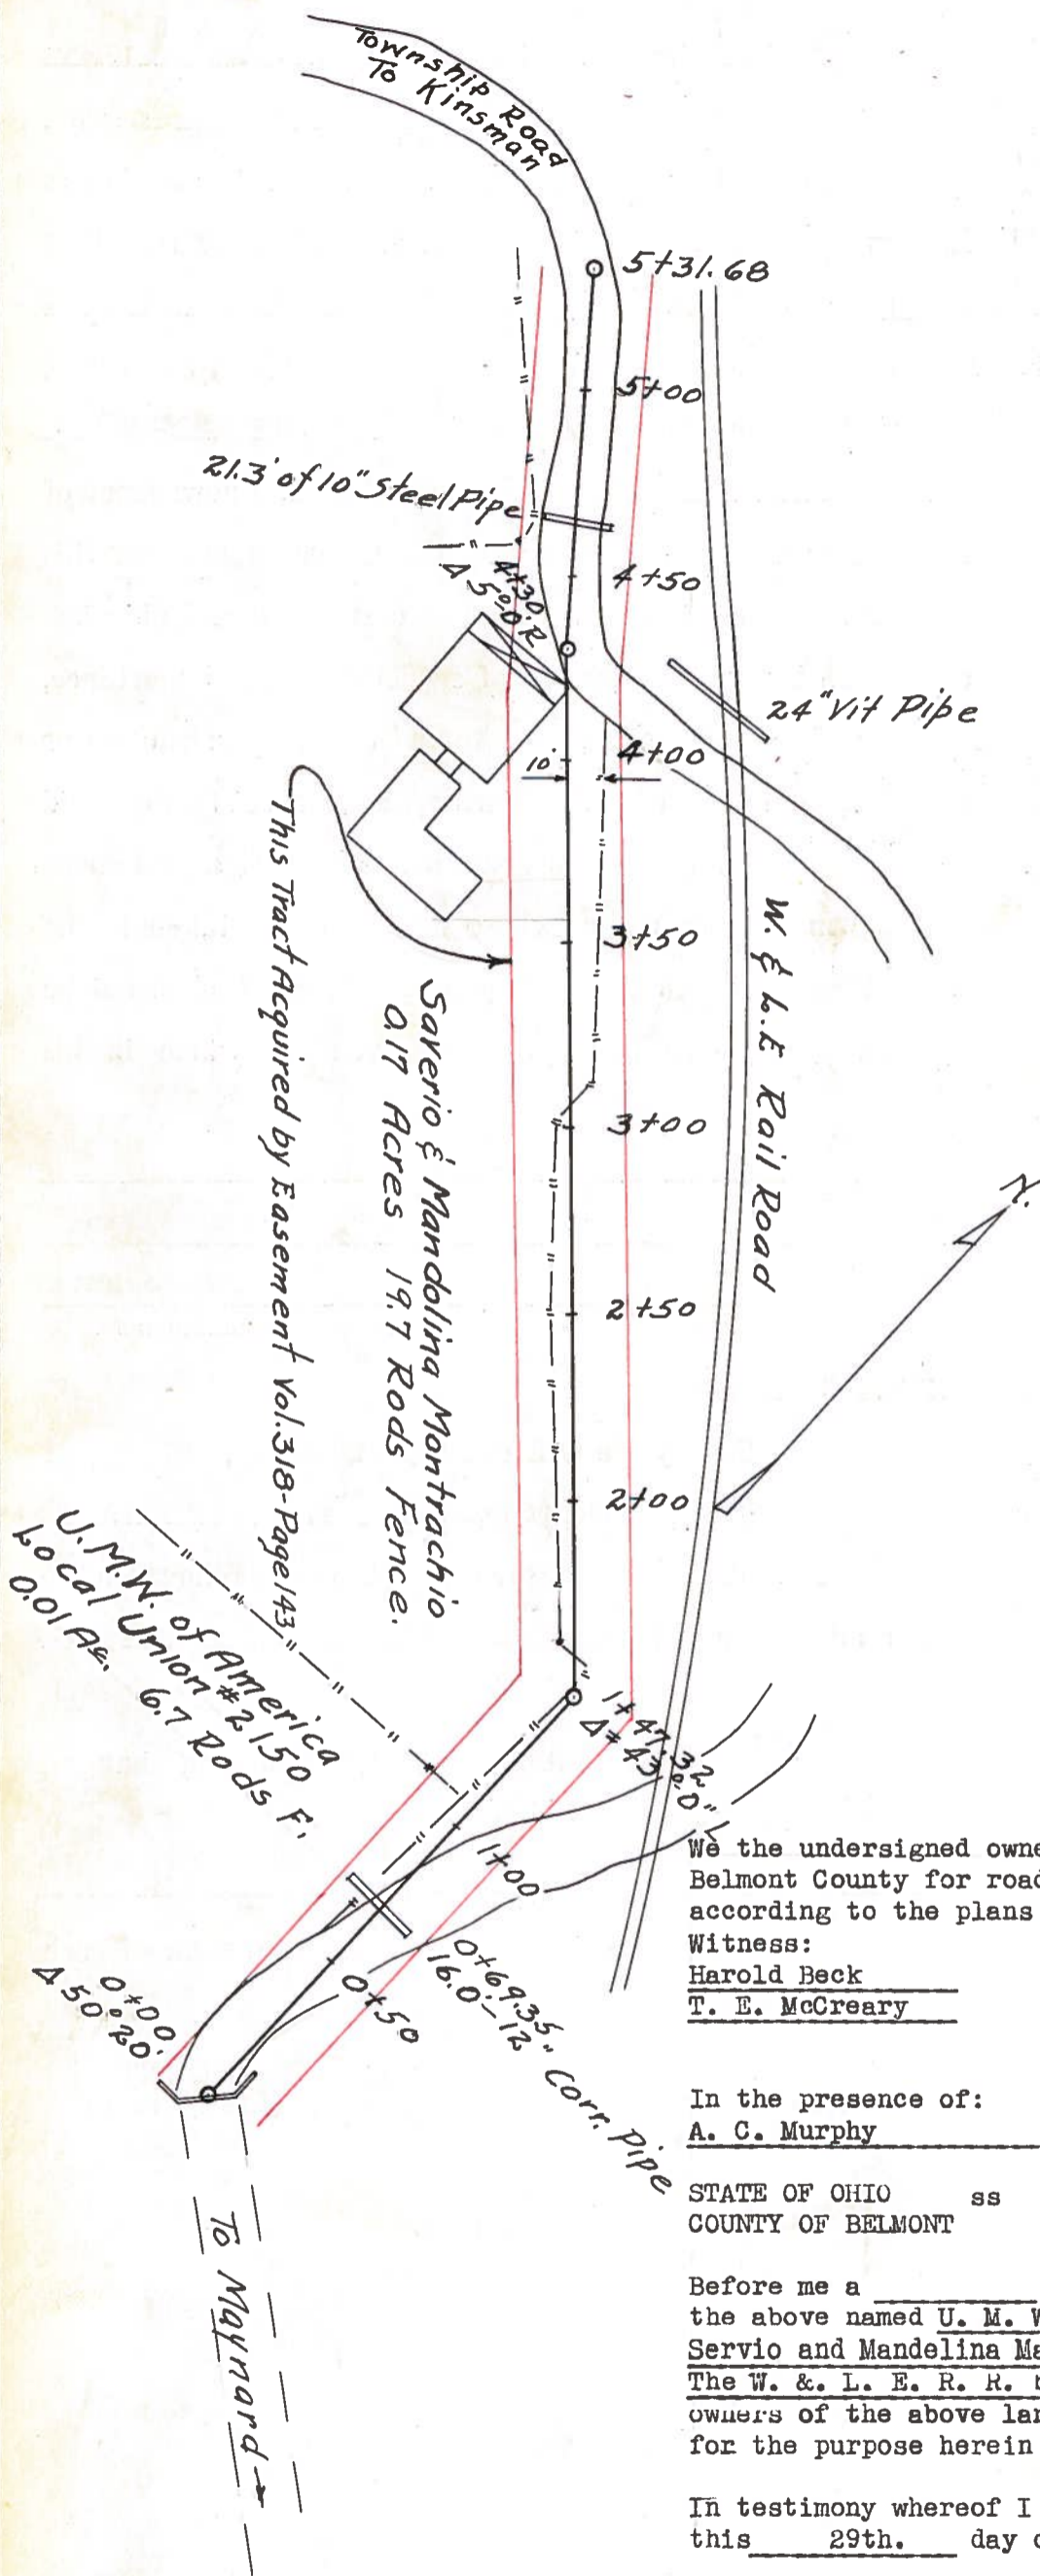 Township Road
To Kinsman
5+31.68
5+00
21.3' of 10" Steel Pipe
4+50
4+30
Δ 5°0' R
24" Vit Pipe
4+00
10'
This Tract Acquired by Easement Vol. 318-Page 143
3+50
W. & L. E Rail Road
Saverio & Mandolina Montrachio
0.17 Acres 19.7 Rods Fence.
3+00
N.
2+50
2+00
U.M.W. of America
Local Union #2150
0.01 Ac. 6.7 Rods F.
1+47.32
Δ= 43°0" L
1+00
0+69.35
16.0'-12" Corr. Pipe
0+50
0+00
Δ 50°20'
To Maynard
We the undersigned owne
Belmont County for road
according to the plans
Witness:
Harold Beck
T. E. McCreary
In the presence of:
A. C. Murphy
STATE OF OHIO ss
COUNTY OF BELMONT
Before me a
the above named U. M. W
Servio and Mandelina Ma
The W. &. L. E. R. R.
owners of the above lan
for the purpose herein
In testimony whereof I
this 29th. day o